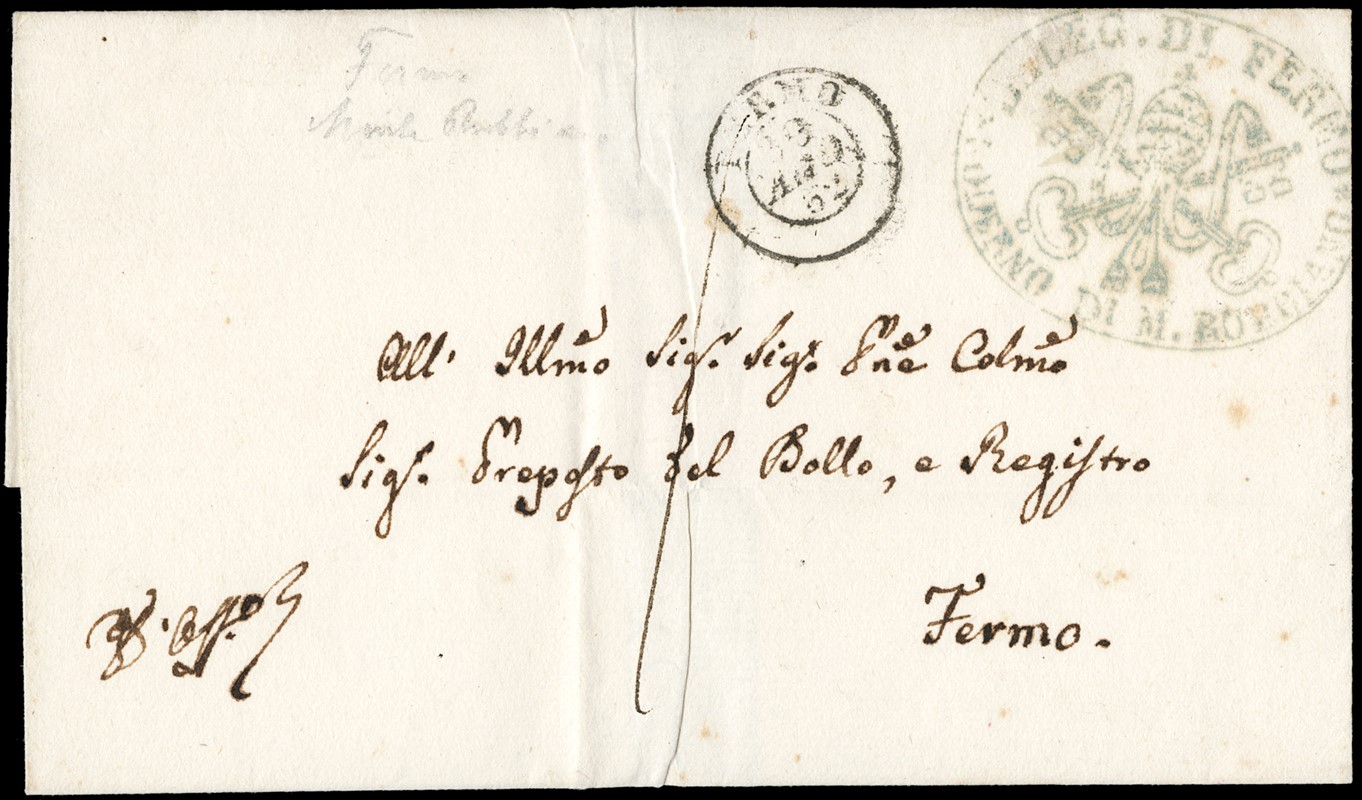 Fermo
Monte Rubbian
FERMO
13
AGO
52
DELEG. DI FERMO
GOVERNO DI M. RUBBIANO
All' Illmo Sigr. Sigr. Pne Colmo
Sigr. Preposto del Bollo, e Registro
Fermo.